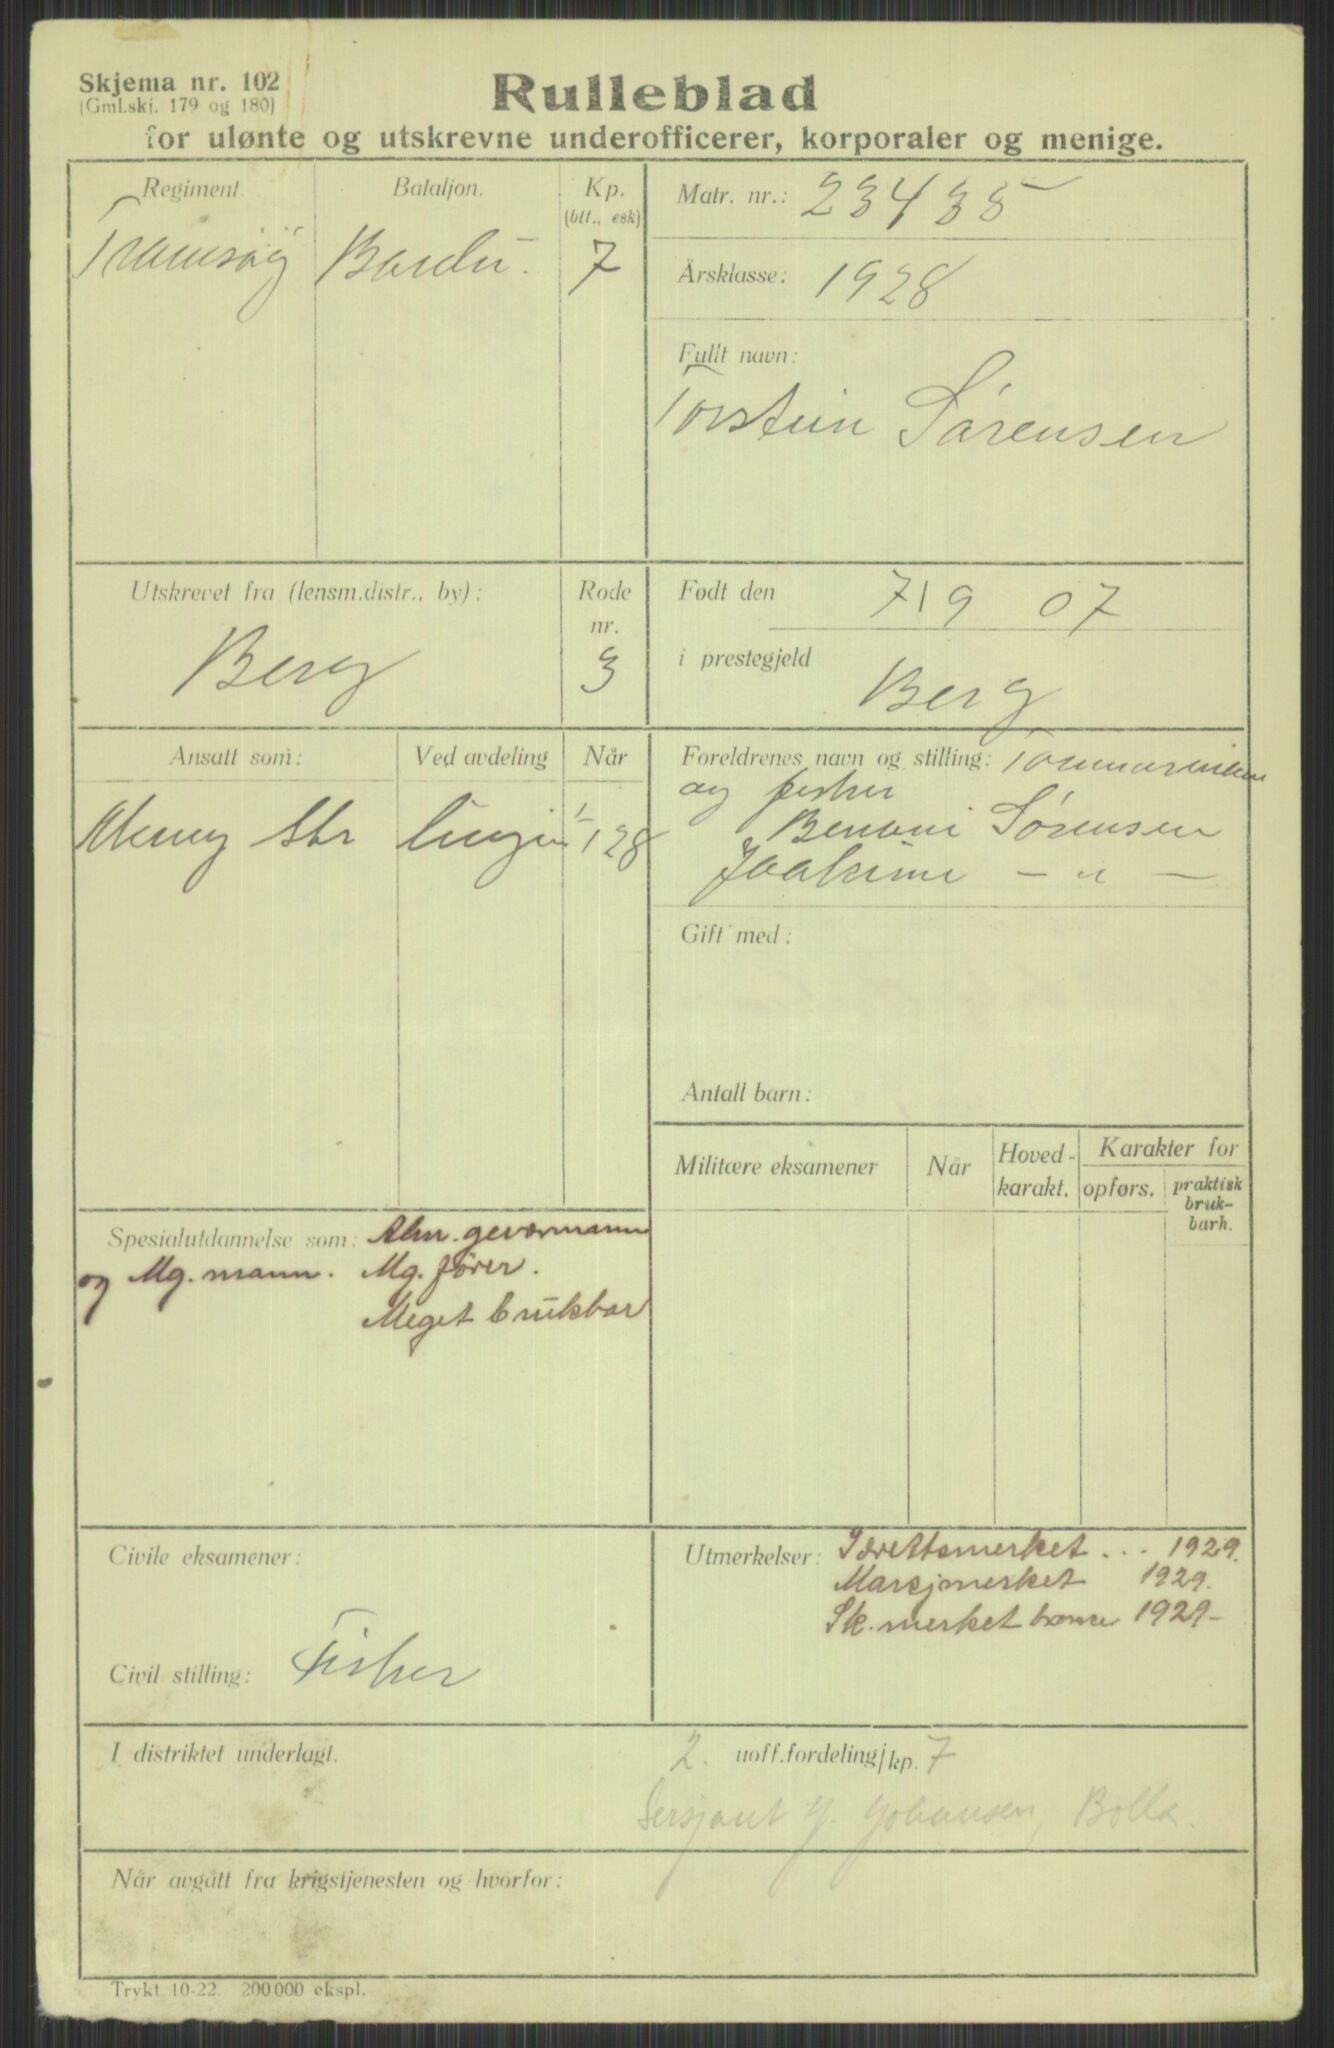 Skjema nr. 102
(Gml.skj. 179 og 180)
Rulleblad
for ulønte og utskrevne underofficerer, korporaler og menige.
Regiment.
Bataljon.
Kp.
(btt., esk)
Bardu.
7
Matr. nr.: 23435
Årsklasse: 1928
Fullt navn:
Torstein Sørensen
Utskrevet fra (lensm.distr., by):
Berg
Rode
nr.
3
Født den 7/9 07
i prestegjeld
Berg
Ansatt som:
Ved avdeling
Når
Menig
linjen
1/1 28
Foreldrenes navn og stilling:
og fisker
Benoni Sørensen
Joakime — " —
Gift med:
Antall barn:
Militære eksamener
Når
Hoved-
karakt.
Karakter for
opførs.
praktisk
bruk-
barh.
Spesialutdannelse som: Alm. geværmann
og Mg. mann. Mg. fører.
Meget brukbar
Civile eksamener:
Civil stilling: Fisker
Utmerkelser: Idrettsmerket ... 1929.
Marsjmerket 1929.
Sk. merket bronse 1929-
I distriktet underlagt.
2. uoff.fordeling/kp. 7
Sersjant J. Johansen, Bolla.
Når avgått fra krigstjenesten og hvorfor:
Trykt 10-22. 200 000 ekspl.